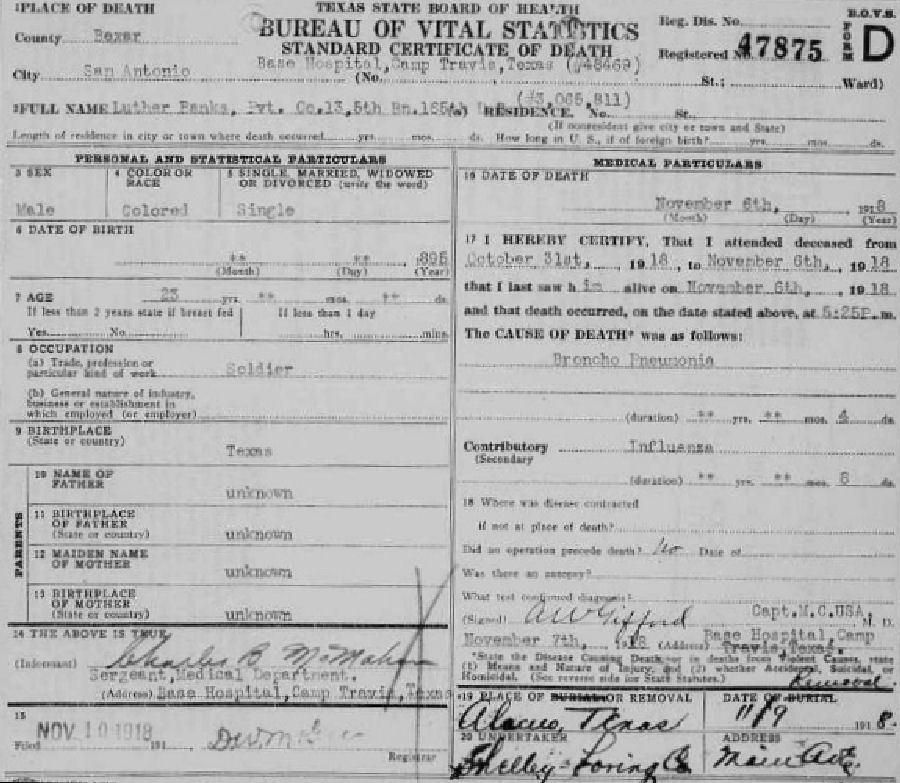 1PLACE OF DEATH
TEXAS STATE BOARD OF HEALTH
BUREAU OF VITAL STATISTICS
STANDARD CERTIFICATE OF DEATH
Reg. Dis. No.
B.O.V.S.
FORM D
County Bexar
Registered No. 47875
City San Antonio
Base Hospital, Camp Travis, Texas (#48469)
(No. St.; Ward)
(#3,065,811)
2FULL NAME Luther Banks, Pvt. Co.13,5th Bn.165th (a) RESIDENCE. No. St.
(If nonresident give city or town and State)
Length of residence in city or town where death occurred yrs. mos. ds. How long in U. S., if of foreign birth? yrs. mos. ds.
PERSONAL AND STATISTICAL PARTICULARS
3 SEX
Male
4 COLOR OR RACE
Colored
5 SINGLE, MARRIED, WIDOWED
OR DIVORCED (write the word)
Single
6 DATE OF BIRTH
** ** 1895
(Month) (Day) (Year)
7 AGE 23 yrs. ** mos. ** ds.
If less than 2 years state if breast fed
Yes No
If less than 1 day
hrs. mins.
8 OCCUPATION
(a) Trade, profession or
particular kind of work Soldier
(b) General nature of industry,
business or establishment in
which employed (or employer)
9 BIRTHPLACE
(State or country)
Texas
PARENTS
10 NAME OF
FATHER unknown
11 BIRTHPLACE
OF FATHER
(State or country) unknown
12 MAIDEN NAME
OF MOTHER unknown
13 BIRTHPLACE
OF MOTHER
(State or country) unknown
14 THE ABOVE IS TRUE
(Informant) Charles B McMahon
Sergeant, Medical Department.
(Address) Base Hospital, Camp Travis, Texas
15
Filed NOV 10 1918 191
Registrar
MEDICAL PARTICULARS
16 DATE OF DEATH
November 6th, 1918
(Month) (Day) (Year)
17 I HEREBY CERTIFY, That I attended deceased from
October 31st, 1918, to November 6th, 1918
that I last saw him alive on November 6th, 1918
and that death occurred, on the date stated above, at 5:25P.m.
The CAUSE OF DEATH* was as follows:
Broncho Pneumonia
(duration) ** yrs. ** mos. 4 ds.
Contributory Influenza
(Secondary
(duration) ** yrs. ** mos. 8 ds.
18 Where was disease contracted
if not at place of death?
Did an operation precede death? No Date of
Was there an autopsy?
What test confirmed diagnosis?
(Signed) AW Gifford Capt.M.C.USA. M. D.
November 7th, 1918 (Address) Base Hospital, Camp
Travis, Texas.
*State the Disease Causing Death, or in deaths from Violent Causes, state
(1) Means and Nature of Injury, and (2) whether Accidental, Suicidal, or
Homicidal. (See reverse side for State Statutes.)
Removal.
19 PLACE OF BURIAL OR REMOVAL
Alamo, Texas
DATE OF BURIAL
11/9 1918.
20 UNDERTAKER
Shelley-Loring Co
ADDRESS
Main Ave.